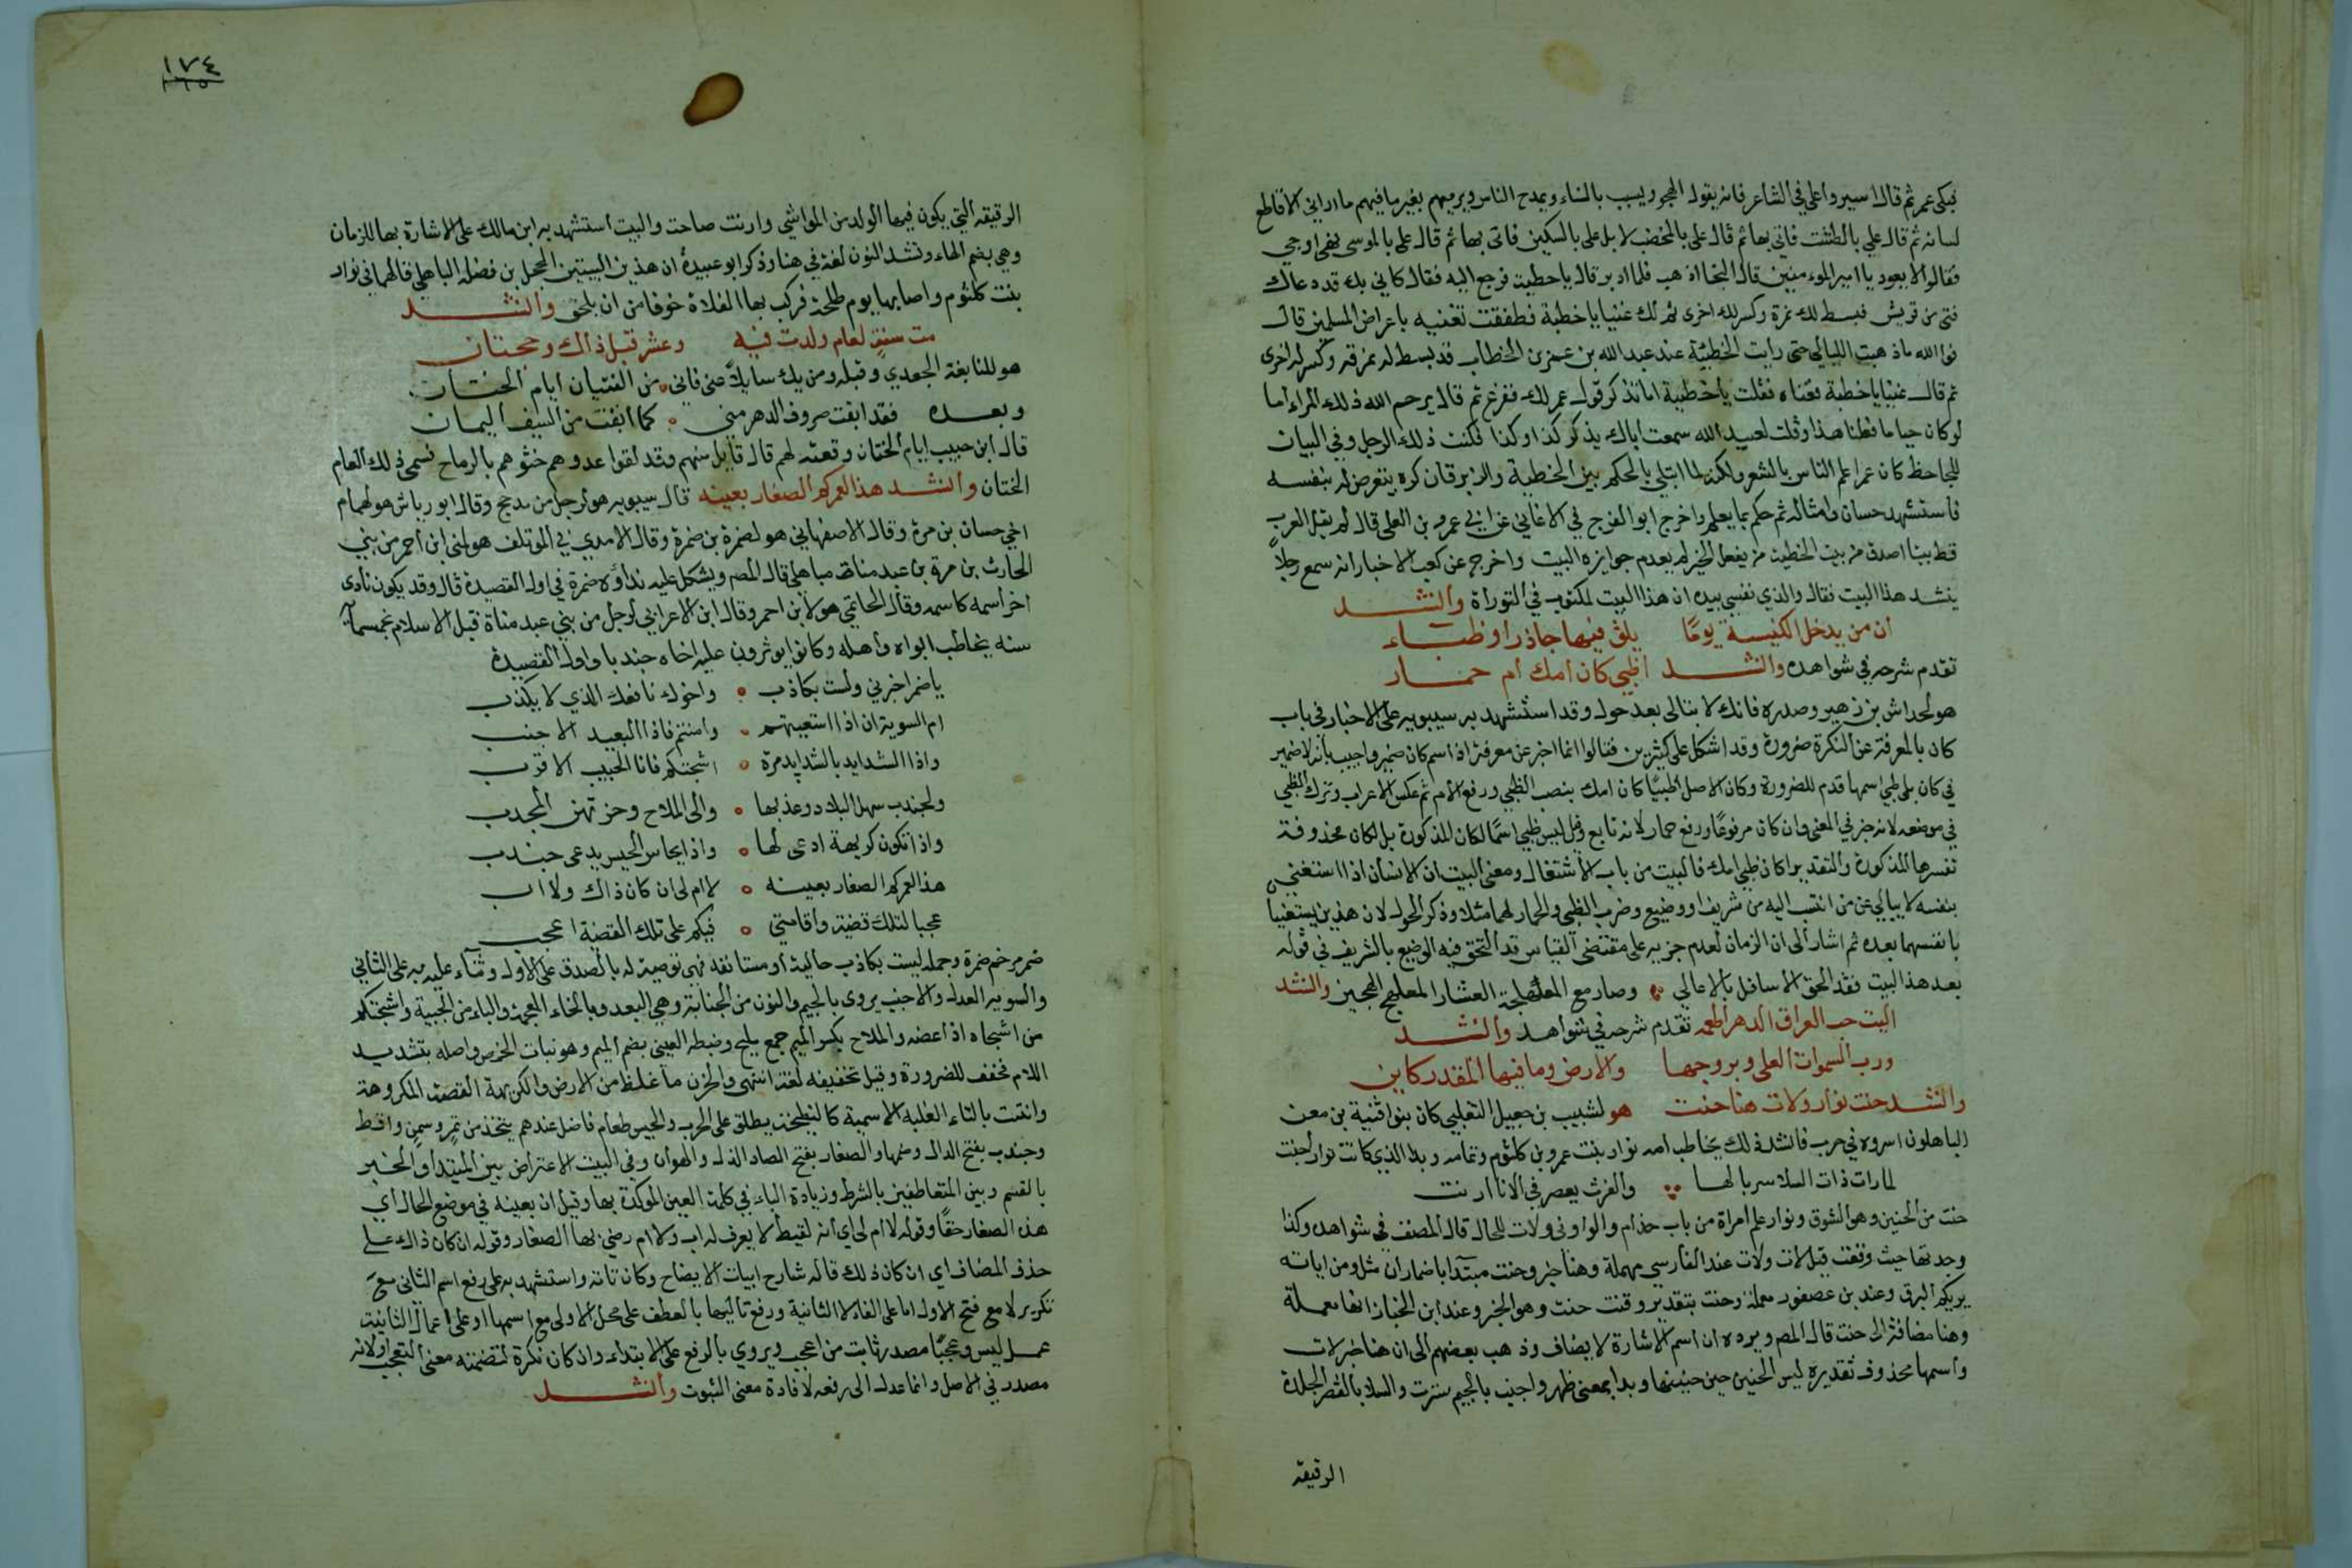 فبكى عمر ثم قال اسيروا على في الشاعر فانه يقول الهجو ويسبب بالنساء ويمدح الناس ويرميهم بغير ما فيهم ما اراني الا قاطع
لسانه ثم قال علي بالطشت فاتي بها ثم قال علي بالمخضب لا بل علي بالسكين فاتى بها ثم قال علي بالموسى فهي اوحى
فقالوا لا يعود يا امير الموءمنين قال النجا اذهب فلما ادبر قال يا حطيئة فرجع اليه فقال كاني بك قد دعاك
فتى من قريش فبسط لك نمرة وكسر لك اخرى ثم لك غننا يا حطية فطفقت تغنيه باعراض المسلمين قال
فوالله ماذهبت الليالي حتى رايت الحطيئة عند عبد الله بن عمر بن الخطاب قد بسط له نمرقه وكسر له اخرى
ثم قال غننا يا حطية فغناه فقلت يا حطيئة اما تذكر قول عمر لك ففزع ثم قال يرحم الله ذلك المراء اما
لو كان حيا ما فعلنا هذا وقلت لعبيد الله سمعت اباك يذكر كذا وكذا فكنت ذلك الرجل وفي البيان
للجاحظ كان عمر اعلم الناس بالشعر ولكنه لما ابتلي بالحكم بين الحطيئة والزبرقان كره يتعرض له بنفسه
فاستشهد حسان وامثاله ثم حكم بما يعلم واخرج ابو الفرج في الاغاني عن ابي عمرو بن العلى قال لم يقل العرب
قط بيتا اصدق من بيت الحطيئة من يفعل الخير لم يعدم جوازيه البيت واخرج عن كعب الاخبار انه سمع رجلا
ينشد هذا البيت فقال والذي نفسي بيده ان هذا البيت لمكتوب في التوراة وانشد
ان من يدخل الكنيسة يوما يلق فيها جاذرا وظباء
تقدم شرحه في شواهده وانشد اظبي كان امك ام حمار
هو لخداش بن زهير وصدره فانك لا تبالى بعد حول وقد استشهد به سيبويه على الاخبار في باب
كان بالمعرفة عن النكرة ضرورة وقد اشكل على كثيرين فقالوا انما اخبر عن معرفة اذ اسم كان ضمير واجيب بانه لا ضمير
في كان بل ظبي اسمها قدم للضرورة وكان الاصل اظبيا كان امك بنصب الظبي ورفع الام ثم عكس الاعراب وترك الظبي
في موضعه لانه خبر في المعنى وان كان مرفوعا ورفع حمار لانه تابع وقيل ليس ظبي اسما لكان المذكورة بل لكان محذوفة
تفسرها المذكورة والتقدير اكان ظبي امك فالبيت من باب الاشتغال ومعنى البيت ان الانسان اذا استغنى
بنفسه لا يبالي عن من انتسب اليه من شريف او وضيع وضرب الظبي والحمار لهما مثلا وذكر الحول لان هذين يستغنيا
بانفسهما بعده ثم اشار الى ان الزمان لعدم جريه على مقتضى القياس قد التحق فيه الوضيع بالشريف في قوله
بعد هذا البيت فقد لحق الاسافل بالاعالي وصار مع العشار المعلهج الهجين وانشد
اليت حب العراق الدهر اطعمه تقدم شرحه في شواهد وانشد
ورب السموات العلى وبروجها والارض وما فيها المقدر كاين
وانشد حنت نوار ولات هنا حنت هو لشبيب بن جعيل التغلبي كان بنو اقتيبة بن معن
الباهلون اسروه في حرب فانشد ذلك يخاطب امه نوار بنت عمرو بن كلثوم وتمامه وبدا الذي كانت نوار اجنت
لما رات ذات السلا سربالها والفرث يعصر في الانا ارنت
حنت من الحنين وهو الشوق ونوار علم امراة من باب حذام والواو في ولات للحال قال المصنف في شواهده وكذا
وحدتها حيث وقعت قبل لات ولات عند الفارسي مهملة وهنا خبر وحنت مبتدا باضمار ان مثل ومن اياته
يريكم البرق وعند بن عصفور معملة وحنت بتقدير وقت حنت وهو الخبر وعند ابن الخباز انها معملة
وهنا مضافة الى حنت قال المص ويرده ان اسم الاشارة لا يضاف وذهب بعضهم الى ان هنا خبر لات
واسمها محذوف تقديره ليس الحنين حين حنينها وبدا بمعنى ظهر واجنت بالجيم سترت والسلا بالقصر الجلدة
الرقيقه
١٧٤
١٦٥
الرقيقه التي يكون فيها الولد من المواشي وارنت صاحت والبيت استشهد به ابن مالك على الاشارة بها للزمان
وهي بضم الهاء وتشد النون لغة في هنا وذكر ابو عبيدة ان هذين البيتين لحجل بن فضلة الباهلي قالهما في نوار
بنت كلثوم واصابها يوم طلحة فركب بها الفلاة خوفا من ان يلحق وانشد
مت سنة لعام ولدت فيه وعشر قبل ذاك وحجتان
هو للنابغة الجعدي وقبله ومن يك سايلا عني فاني من الفتيان ايام الختان
وبعده فقد ابقت صروف الدهر مني كما ابقت من السيف اليمان
قال ابن حبيب ايام الختان وقعة لهم قال قايل منهم وقد لقوا عدوهم خنوهم بالرماح فسمى ذلك العام
الختان وانشد هذا لعمركم الصغار بعينه قال سيبويه هو لرجل من مذحج وقال ابو رياش هو لهمام
اخي حسان بن مرة وقال الاصفهاني هو لضمرة بن ضمرة وقال الامدي في الموتلف هو لهني ابن احمر من بني
الحارث بن مرة بن عبد مناة مباهلي قال المص ويشكل عليه نداؤه ضمرة في اول القصيدة قال وقد يكون نادى
اخر اسمه كاسمه وقال الحاتمي هو لابن احمر وقال ابن الاعرابي لرجل من بني عبد مناة قبل الاسلام بخمسمآية
سنه يخاطب ابواه واهله وكانوا يوثرون عليه اخاه جندبا واول القصيدة
يا ضمر اخبرني ولست بكاذب واخوك نافعك الذي لا يكذب
ام السوية ان اذا استغنيتم وامنتم فانا البعيد الاجنب
واذا الشدايد بالشدايد مرة اشجتكم فانا الحبيب الاقرب
ولجندب سهل البلاد وعذبها ولى الملاح وحزنهن المجدب
واذا تكون كريهة ادعى لها واذا يحاس الحيس يدعى جندب
هذا لعمركم الصغار بعينه لا ام لى ان كان ذاك ولا اب
عجبا لتلك قضية واقامتي فيكم على تلك القضية اعجب
ضمر مرخم ضمرة وجملة ليست بكاذب حالية او مستانفه فهي توصية له بالصدق على الاول وثناء عليه به على الثاني
والسويه العدل والاجنب يروى بالجيم والنون من الجنابة وهي البعد وبالخاء المعجمة والباء من الخيبة واشجتكم
من اشجاه اذا غصه والملاح بكسر الميم جمع مليح وضبطه العيني بضم الميم وهو نبات الحمض واصله بتشديد
اللام فخفف للضرورة وقيل تخفيفه لغة انتهى والحزن ما غلظ من الارض والكريهة القصة المكروهة
وانتت بالتاء لغلبة الاسمية كالنطيحة يطلق على الحرب والحيس طعام فاضل عندهم يتخذ من تمر وسمن واقط
وجندب بفتح الدال وضمها والصغار بفتح الصاد الذل والهوان وفي البيت الاعتراض بين المبتدا والخبر
بالقسم وبين المتعاطفين بالشرط وزيادة الباء في كلمة العين الموكدة بها وقيل ان بعينه في موضع الحال اي
هذا الصغار حقا وقوله لا ام لى اي انه لقيط لا يعرف له اب ولا ام رضي بهذا الصغار وقوله ان كان ذاك على
حذف المضاف اي ان كان ذلك قاله شارح ابيات الايضاح وكان تامة واستشهد به على رفع اسم الثاني مع
تكرير لا مع فتح الاول اما على الغاء لا الثانية ورفع تاليها بالعطف على محل الاولى مع اسمها او على اعمال الثانية
عمل ليس وعجبا مصدر ثابت من اعجب ويروي بالرفع على الابتداء وان كان نكرة لتضمنه معنى التعجب او لانه
مصدر في الاصل وانما عدل الى رفعه لافادة معنى الثبوت وانشد